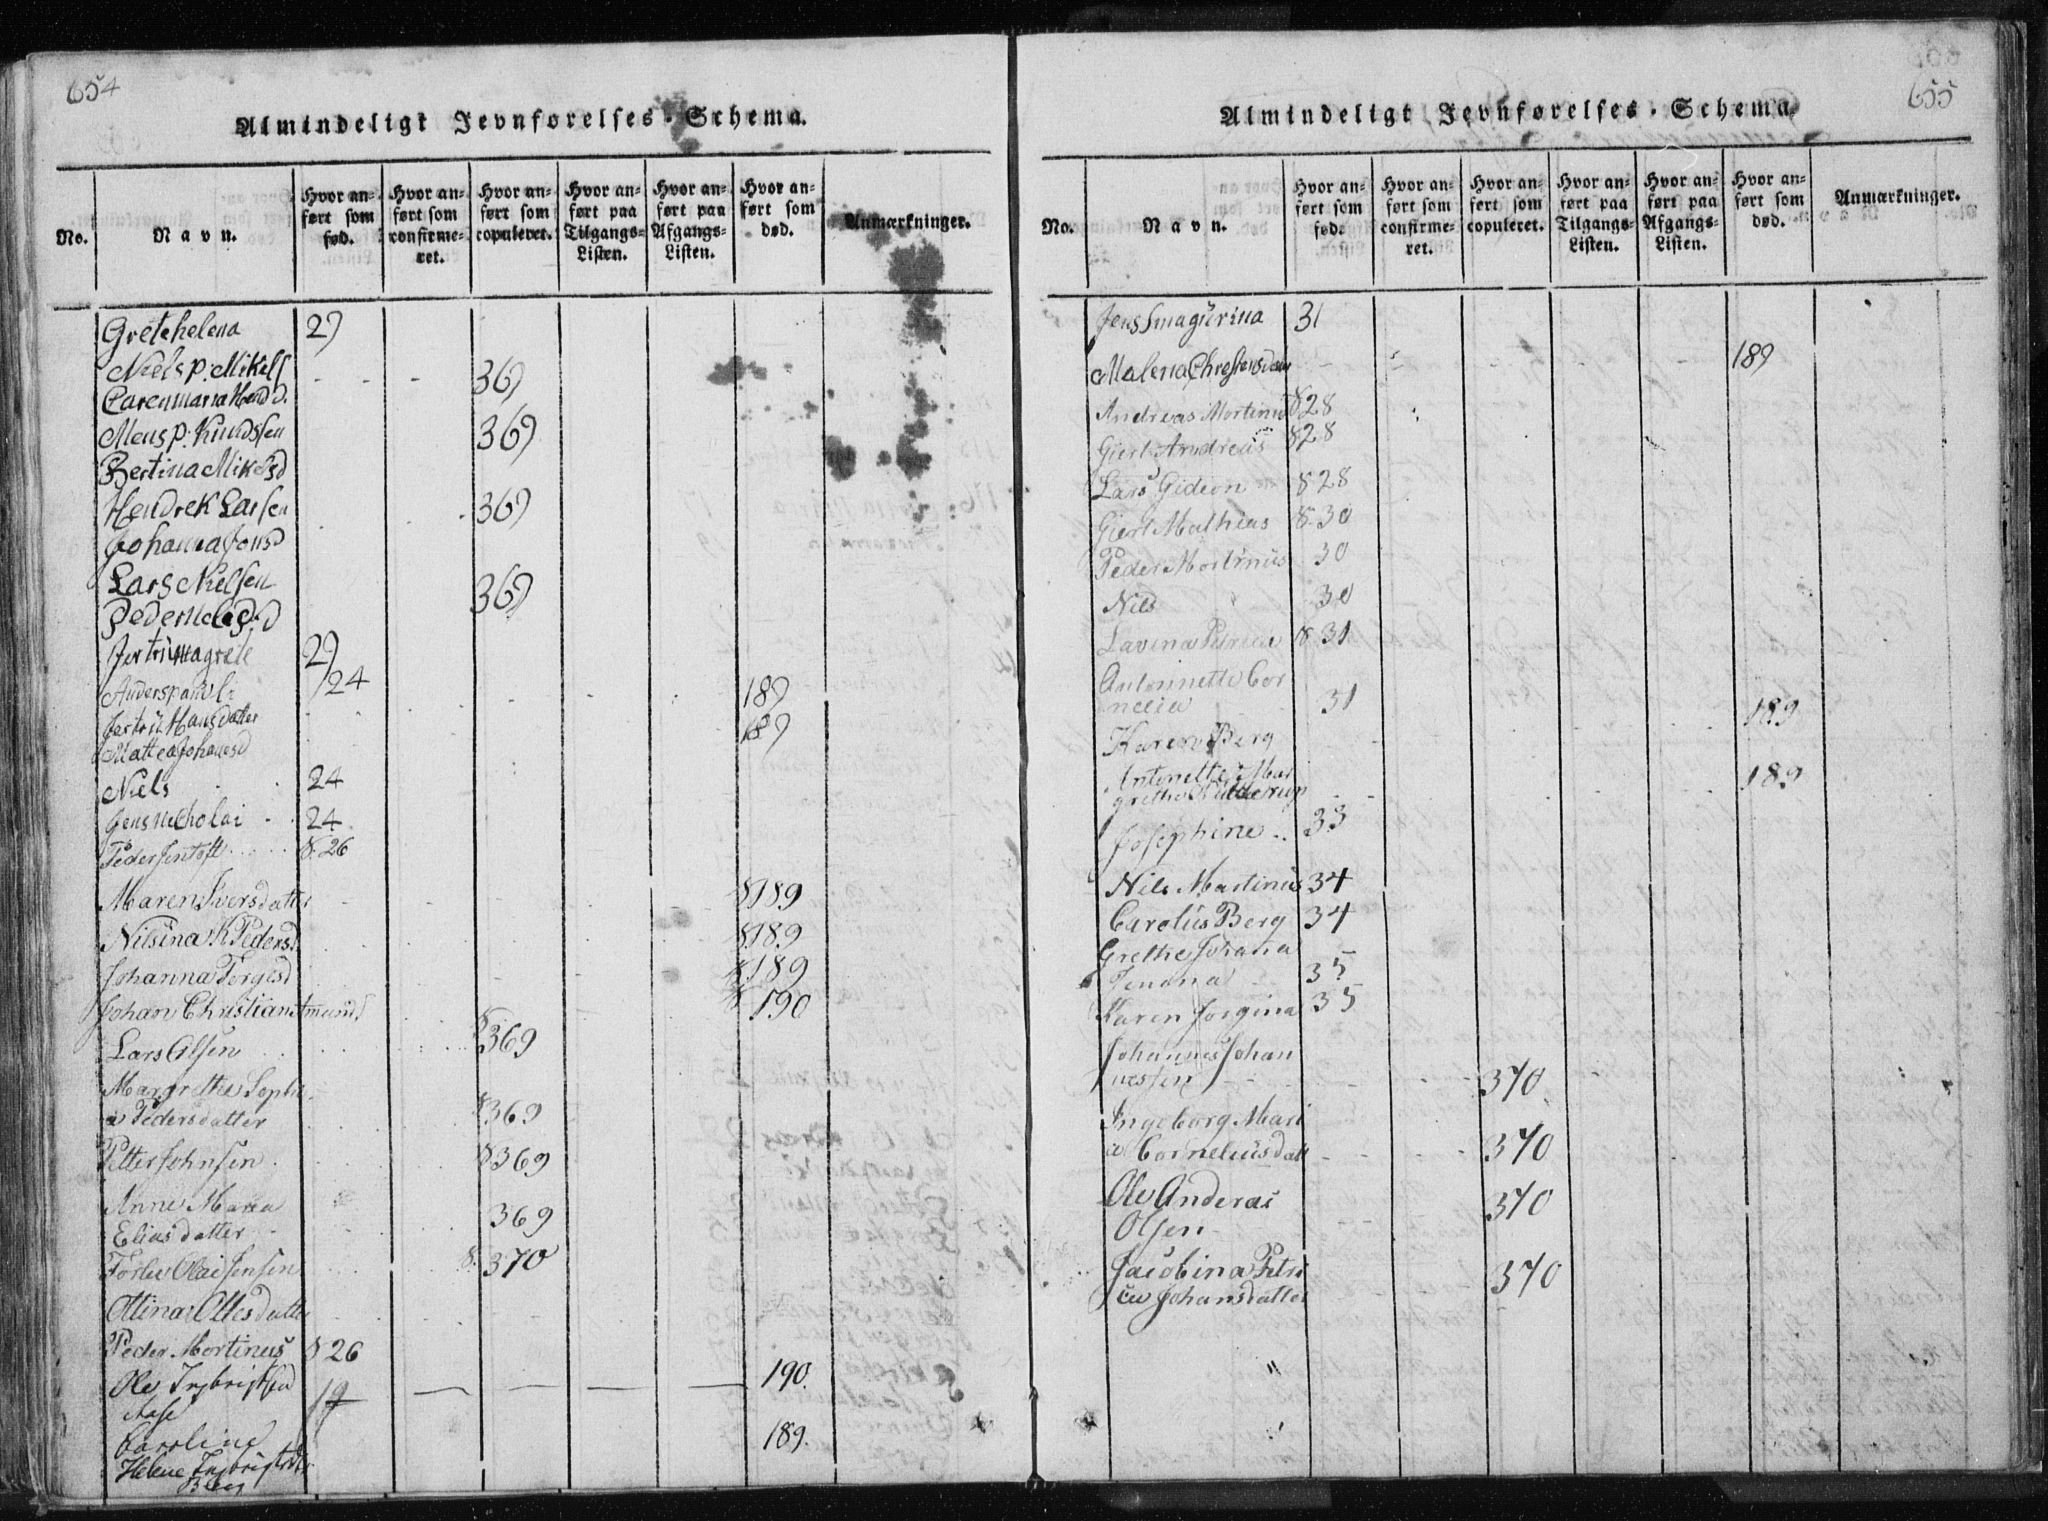 654
Almindeligt Jevnførelses-Schema.
No.
Navn.
Hvor anført som fød.
Hvor anført som confirmeret.
Hvor anført som copuleret.
Hvor anført paa Tilgangs-Listen.
Hvor anført paa Afgangs-Listen.
Hvor anført som død.
Anmærkninger.
Gretehelena 29
Niels p. Mikels 369
Carenmaria Hend D.
Mens p. Knudssen 369
Bertina Mikelsd
Hendrek Larsen 369
Johanna Jonsd
Lars Nielsen 369
Pedernele P.d
Jertrumagrete 29
Anderspauli 24 189
Jertru Hansdatter 189
Mattea Johansd
Niels 24
Jens Nicholai 24
Peder Jentoft 8. 26
Maren Iversdatter 8189
Nilsina K Peders. 8189
Johanna Torgesd 189
Johan Christian Amund. 190
Lars Olsen 8369
Margrethe Sophi
a Pedersdatter 8369
Petter Johnsen 8369
Anne Maria
Eliasdatter 369
Torlev Olai Jensen 8. 370
Ottina Ottesdatter
Peder Mortinus 8 26
Ole Ingbrigtsen 19 190.
Aase
Caroline 189.
Helene Ingbrigtsdtr
Berg
655
Almindeligt Jevnførelses-Schema.
No.
Navn.
Hvor anført som fød.
Hvor anført som confirmeret.
Hvor anført som copuleret.
Hvor anført paa Tilgangs-Listen.
Hvor anført paa Afgangs-Listen.
Hvor anført som død.
Anmærkninger.
Jens Smagurina 31
Malena Chrestensdatter 189
Andreas Mortinus 828
Giert Andreas 828
Lars Gideon 828
Giert Mathias 8. 30
Peder Mortinus 30
Nils 30
Lavina Petrica 8. 31
Antonnette Cor
nelia 31
Karen Berg 189
Antonette Mar
grethe 189
Josephine 33
Nils Martinus 34
Carolus Berg 34
Grethe Johana
35
Karen Jorgina 35
Johannes Johan
nessen 370
Ingeborg Mari
a Corneliusdatt 370
Ole Anderas
Olsen 370
Jacobina Petri
cu Johansdatter 370
"